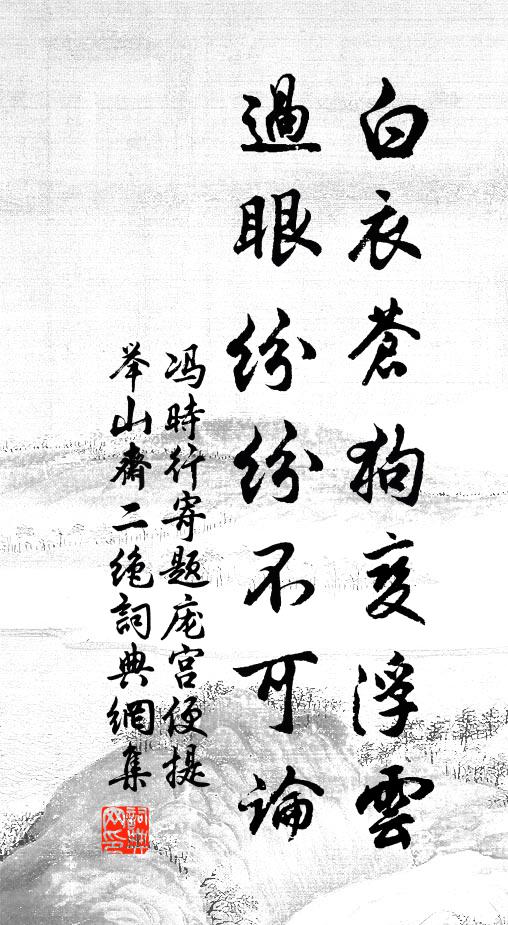 白衣蒼狗变浮雲
過眼紛紛不可論
冯時行寄題庞宫使提
举山齋二绝詞典網集
詞典網印